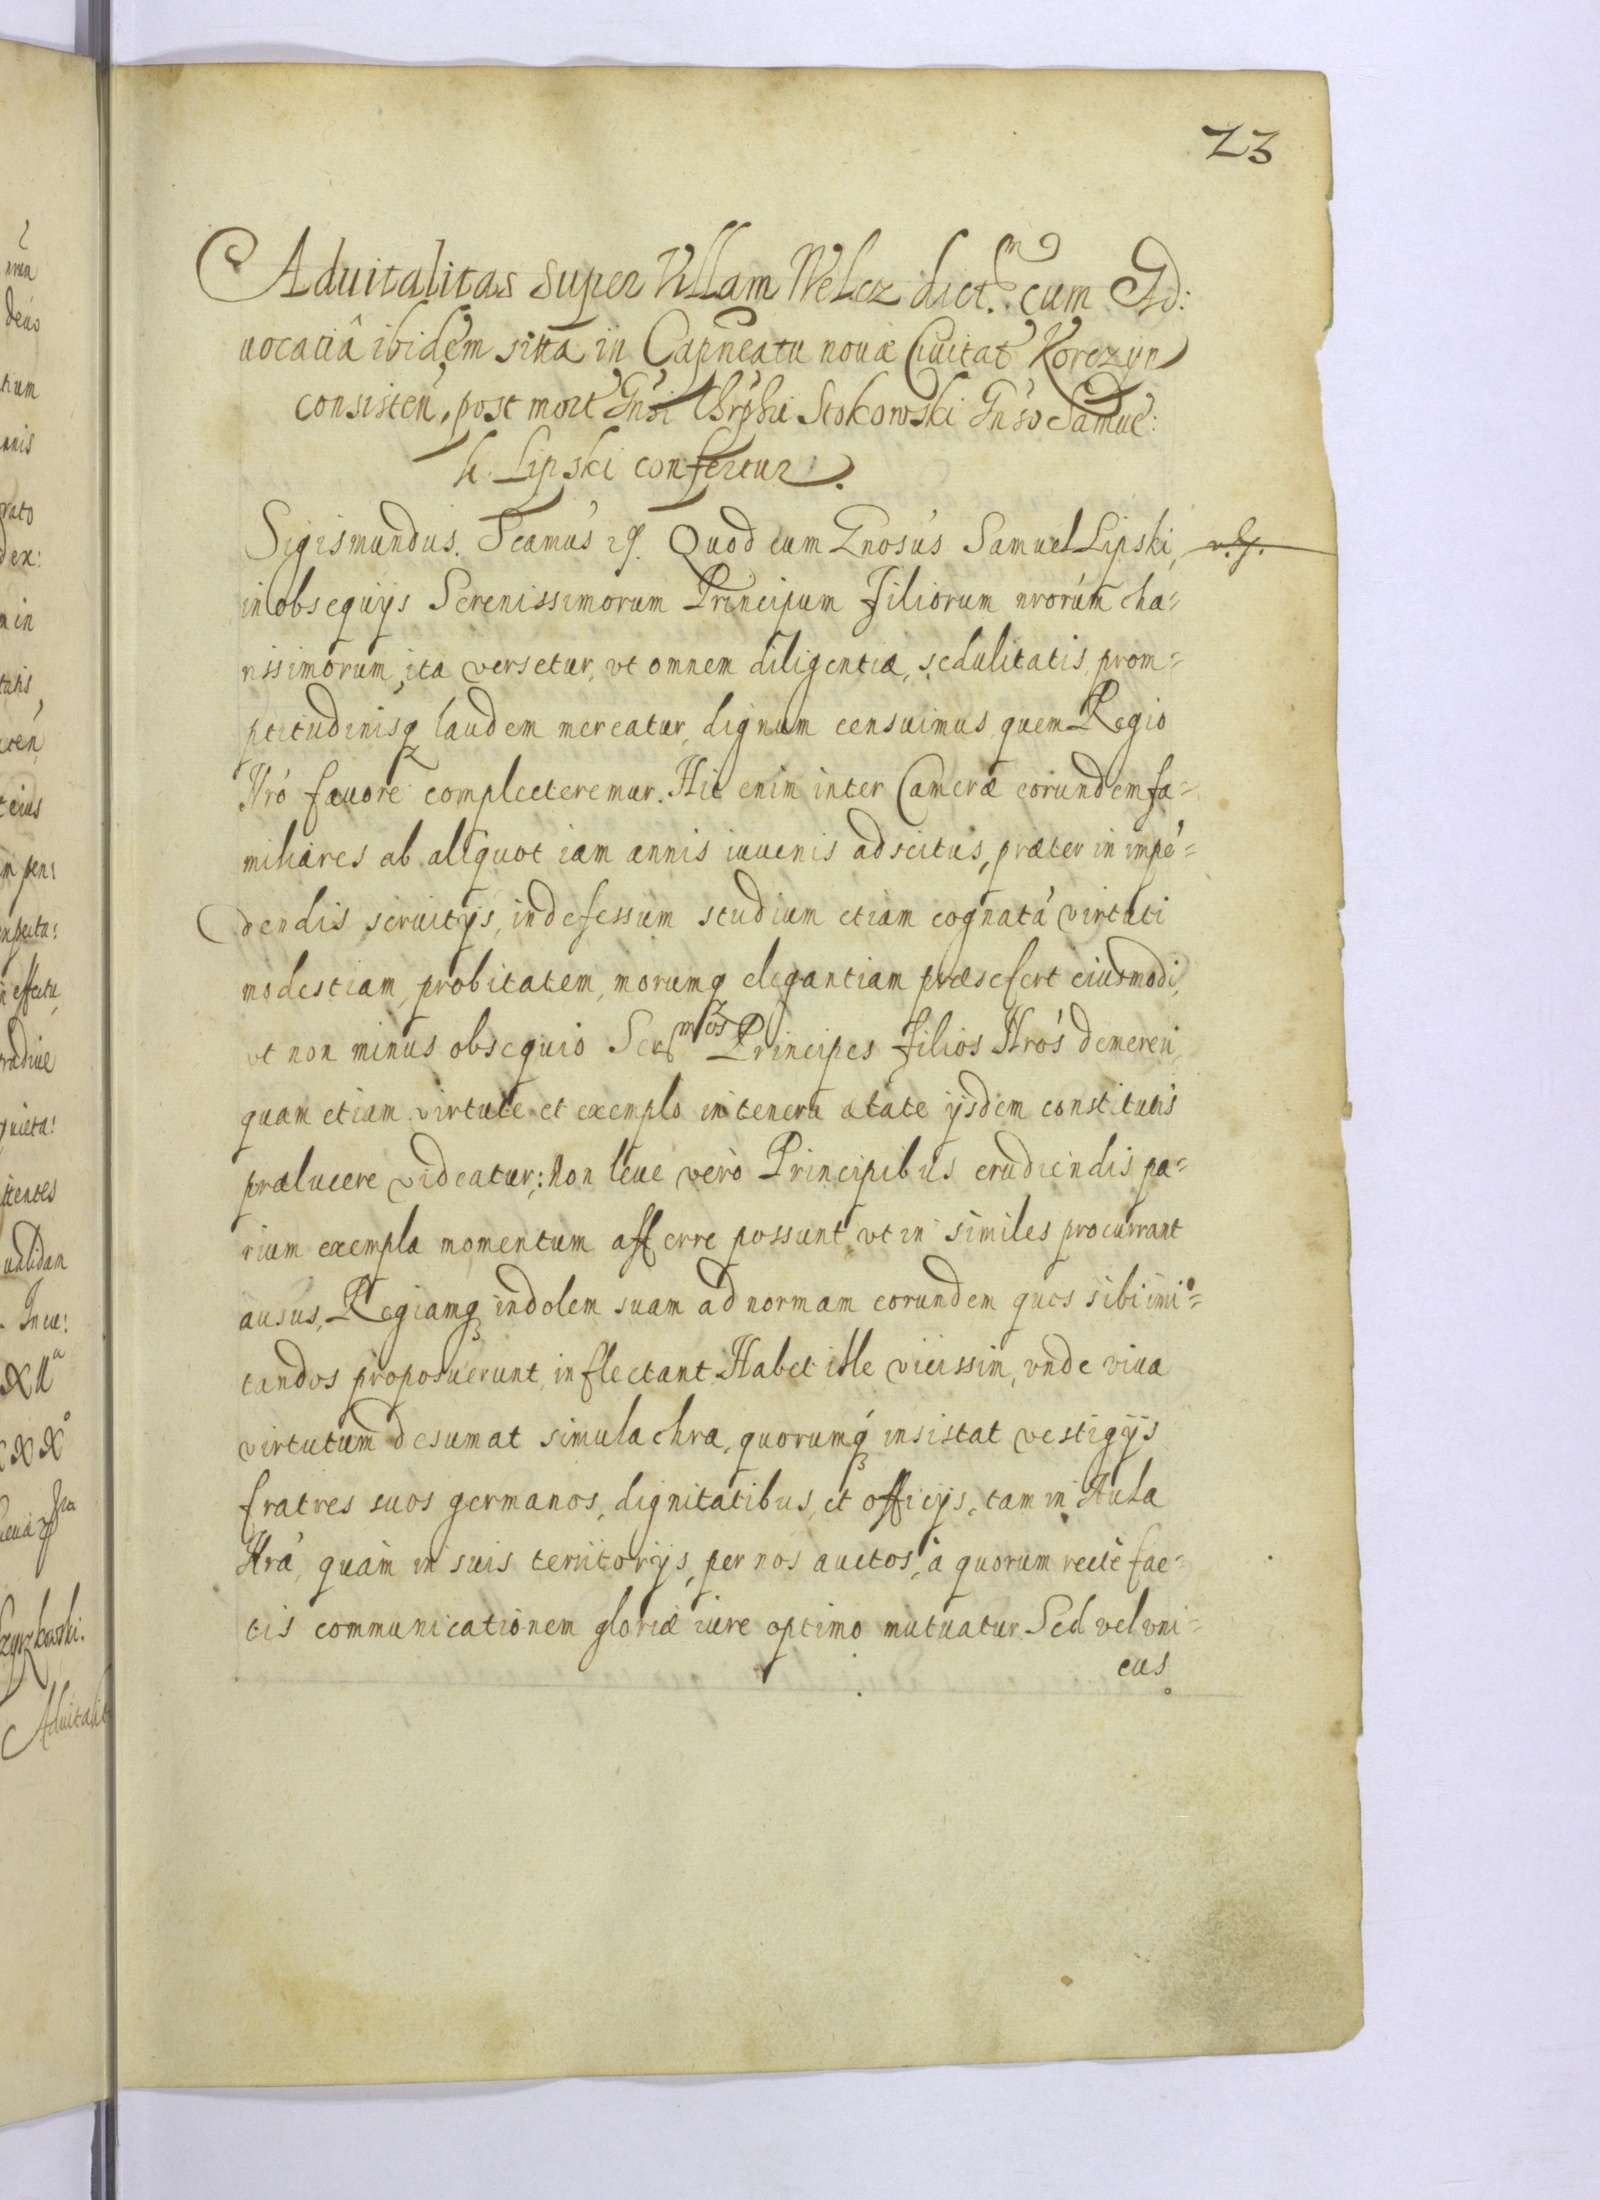 23
Aduitalitas super Villam Welcz dict. cum Ad:
uocatiâ ibidem sitta in Capneatu nouæ Ciuitat Korczyn
consisten, post mort Gnsi Chrphi Stokowski Gnso Samue:
li Lipski confertur.
Sigismundus. Seamus Quod cum Gnosus Samuel Lipski,
in obsequijs Serenissimorum Principum Filiorum nrorum cha=
rissimorum, ita versetur, vt omnem diligentiæ, sedulitatis, prom=
ptitudinisq laudem mereatur, dignum censuimus quem Regio
Nro fauore complecteremur. Hic enim inter Cameræ eorundem fa=
miliares ab aliquot iam annis iuuenis adscitus, præter in impe=
dendis seruitijs, indefessum studium etiam cognatá virtuti
modestiam, probitatem, morumq elegantiam præsefert eiusmodi,
vt non minus obsequio Ser mos Principes Filios Nros demereri,
quam etiam virtute et exemplo in tenera ætate ijsdem constitutis
prælucere videatur; Non leue verò Principibus erudiendis pa=
rium exempla momentum afferre possunt vt in similes procurrant
ausus, Regiamq indolem suam ad normam eorundem quos sibi imi=
tandos proposuerunt, inflectant. Habet ille vicissim, vnde viua
virtutum desumat simulachra, quorumq insistat vestigijs
fratres suos germanos, dignitatibus, et officijs, tam in Aula
Nrá, quàm in suis territorijs, per nos auctos, à quorum rectè fac=
tis communicationem gloriæ iure optimo mutuatur. Sed vel vni=
cus